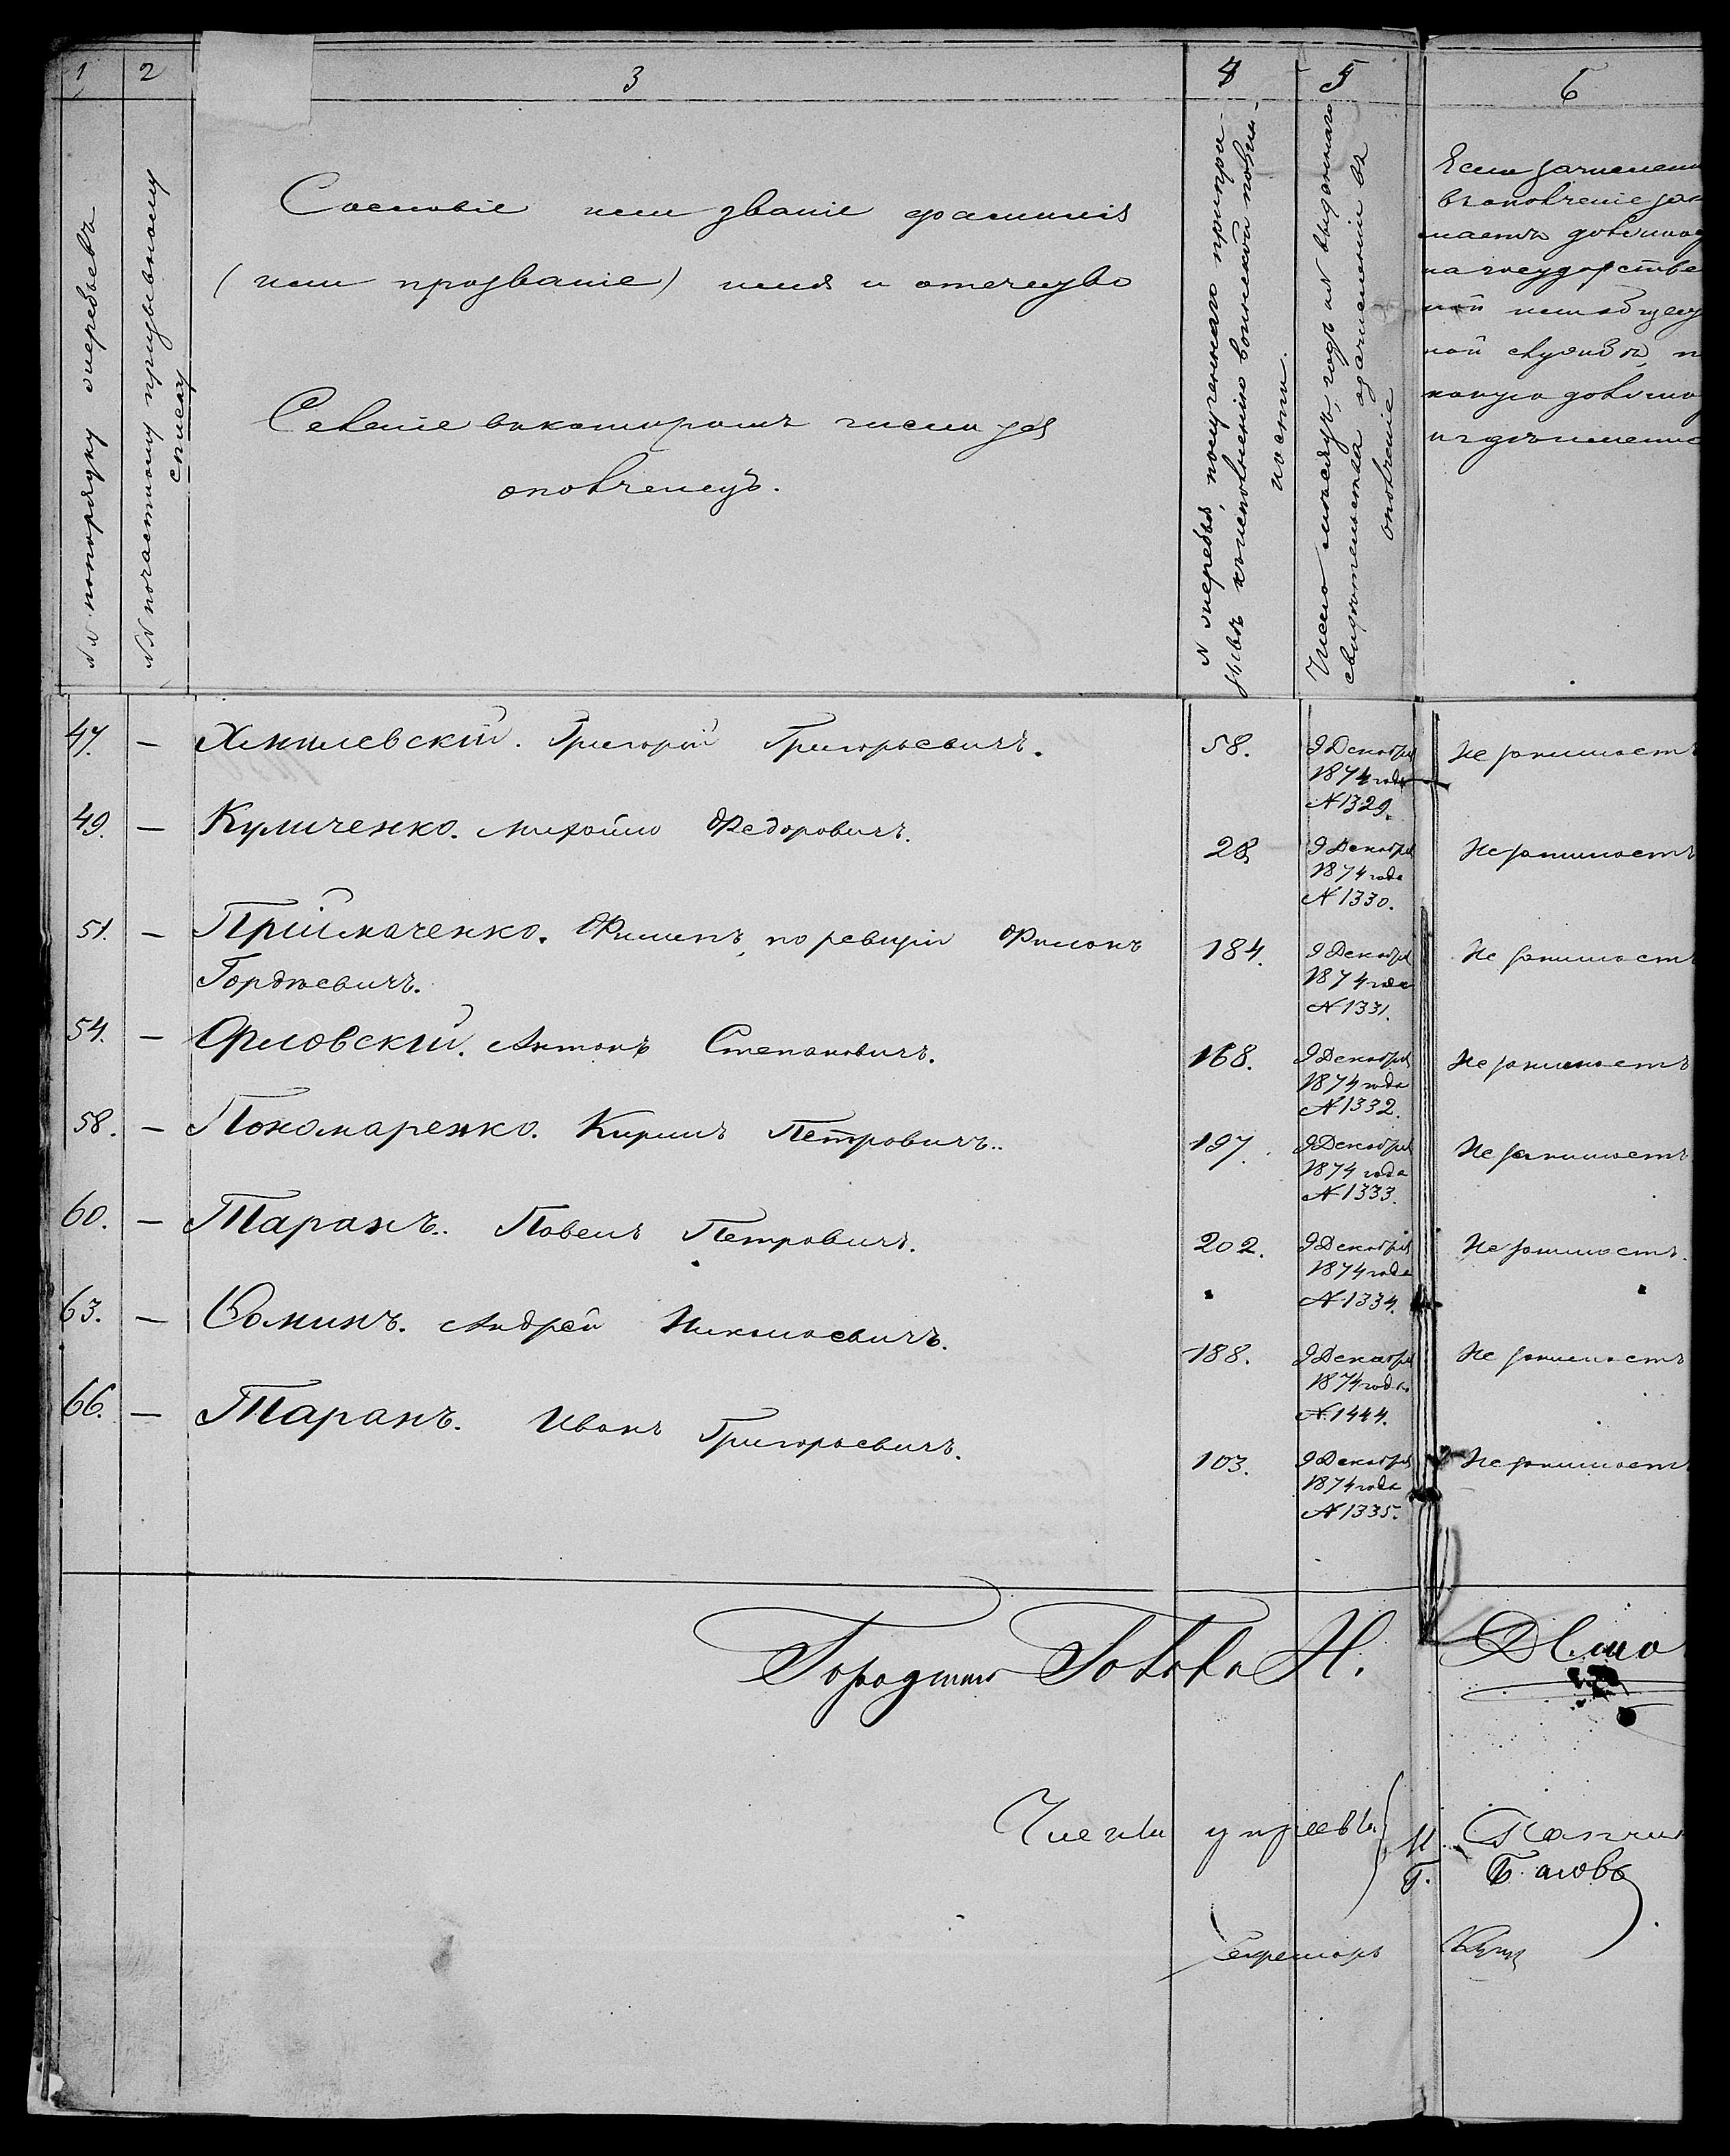 1 2 3 4 5 6
№№ попорядку жеребьевъ
№№ почастному призывному
списку
Сословіе или званіе фамилія
(или прозваніе) имя и отечество
Селеніе вкоторомъ числится
ополченецъ.
№ жеребья, полученнаго припри-
зывѣ къисполненію воинской повин-
ности.
Число мѣсяцъ, годъ и № выданнаго
свидѣтельства озачисленіи въ
ополченіе
Если зачислен
вополченіе зан
маетъ должнос
на государстве
ной или общес
ной службѣ, т
какую должнос
47. — Хмилевскій. Григорій Григорьевичъ. 58. 9 Декабря
1874 года
№ 1329.
Не занимаетъ
49. — Куличенко. Михайло Федоровичъ. 28. 9 Декабря
1874 года
№ 1330.
Не занимаетъ
51. — Пріймаченко. Филипъ, по ревизіи Филонъ
Гордѣевичъ.
184. 9 Декабря
1874 года
№ 1331.
Не занимаетъ
54. — Орловскій. Антонъ Степановичъ. 168. 9 Декабря
1874 года
№ 1332.
Не занимаетъ
58. — Пономаренко. Кирилъ Петровичъ. 197. 9 Декабря
1874 года
№ 1333.
Не занимаетъ
60. — Таранъ. Павелъ Петровичъ. 202. 9 Декабря
1874 года
№ 1334.
Не занимаетъ.
63. — Соминъ. Андрей Николаевичъ. 188. 9 Декабря
1874 года
№ 1444.
Не занимаетъ
66. — Таранъ. Иванъ Григорьевичъ. 103. 9 Декабря
1874 года
№ 1335.
Не занимаетъ
Городской Голова Н.
Члены управы
Секретарь